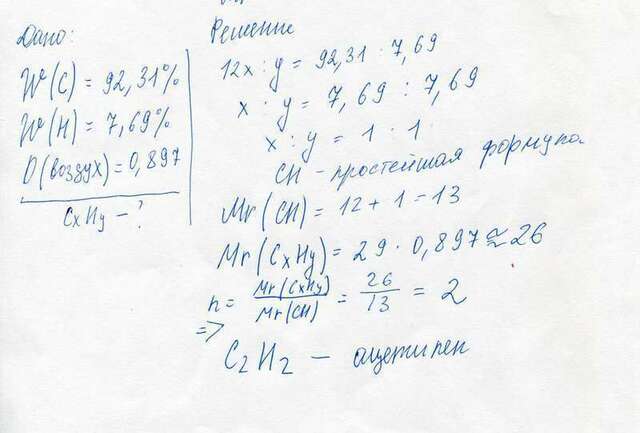 Дано:
W(C) = 92,31%
W(H) = 7,69%
D(воздух) = 0,897
CxHy - ?
Решение
12x : y = 92,31 : 7,69
x : y = 7,69 : 7,69
x : y = 1 : 1
CH - простейшая формула
Mr(CH) = 12 + 1 = 13
Mr(CxHy) = 29 · 0,897 ≈ 26
n = Mr(CxHy)/Mr(CH) = 26/13 = 2
=>
C2H2 - ацетилен